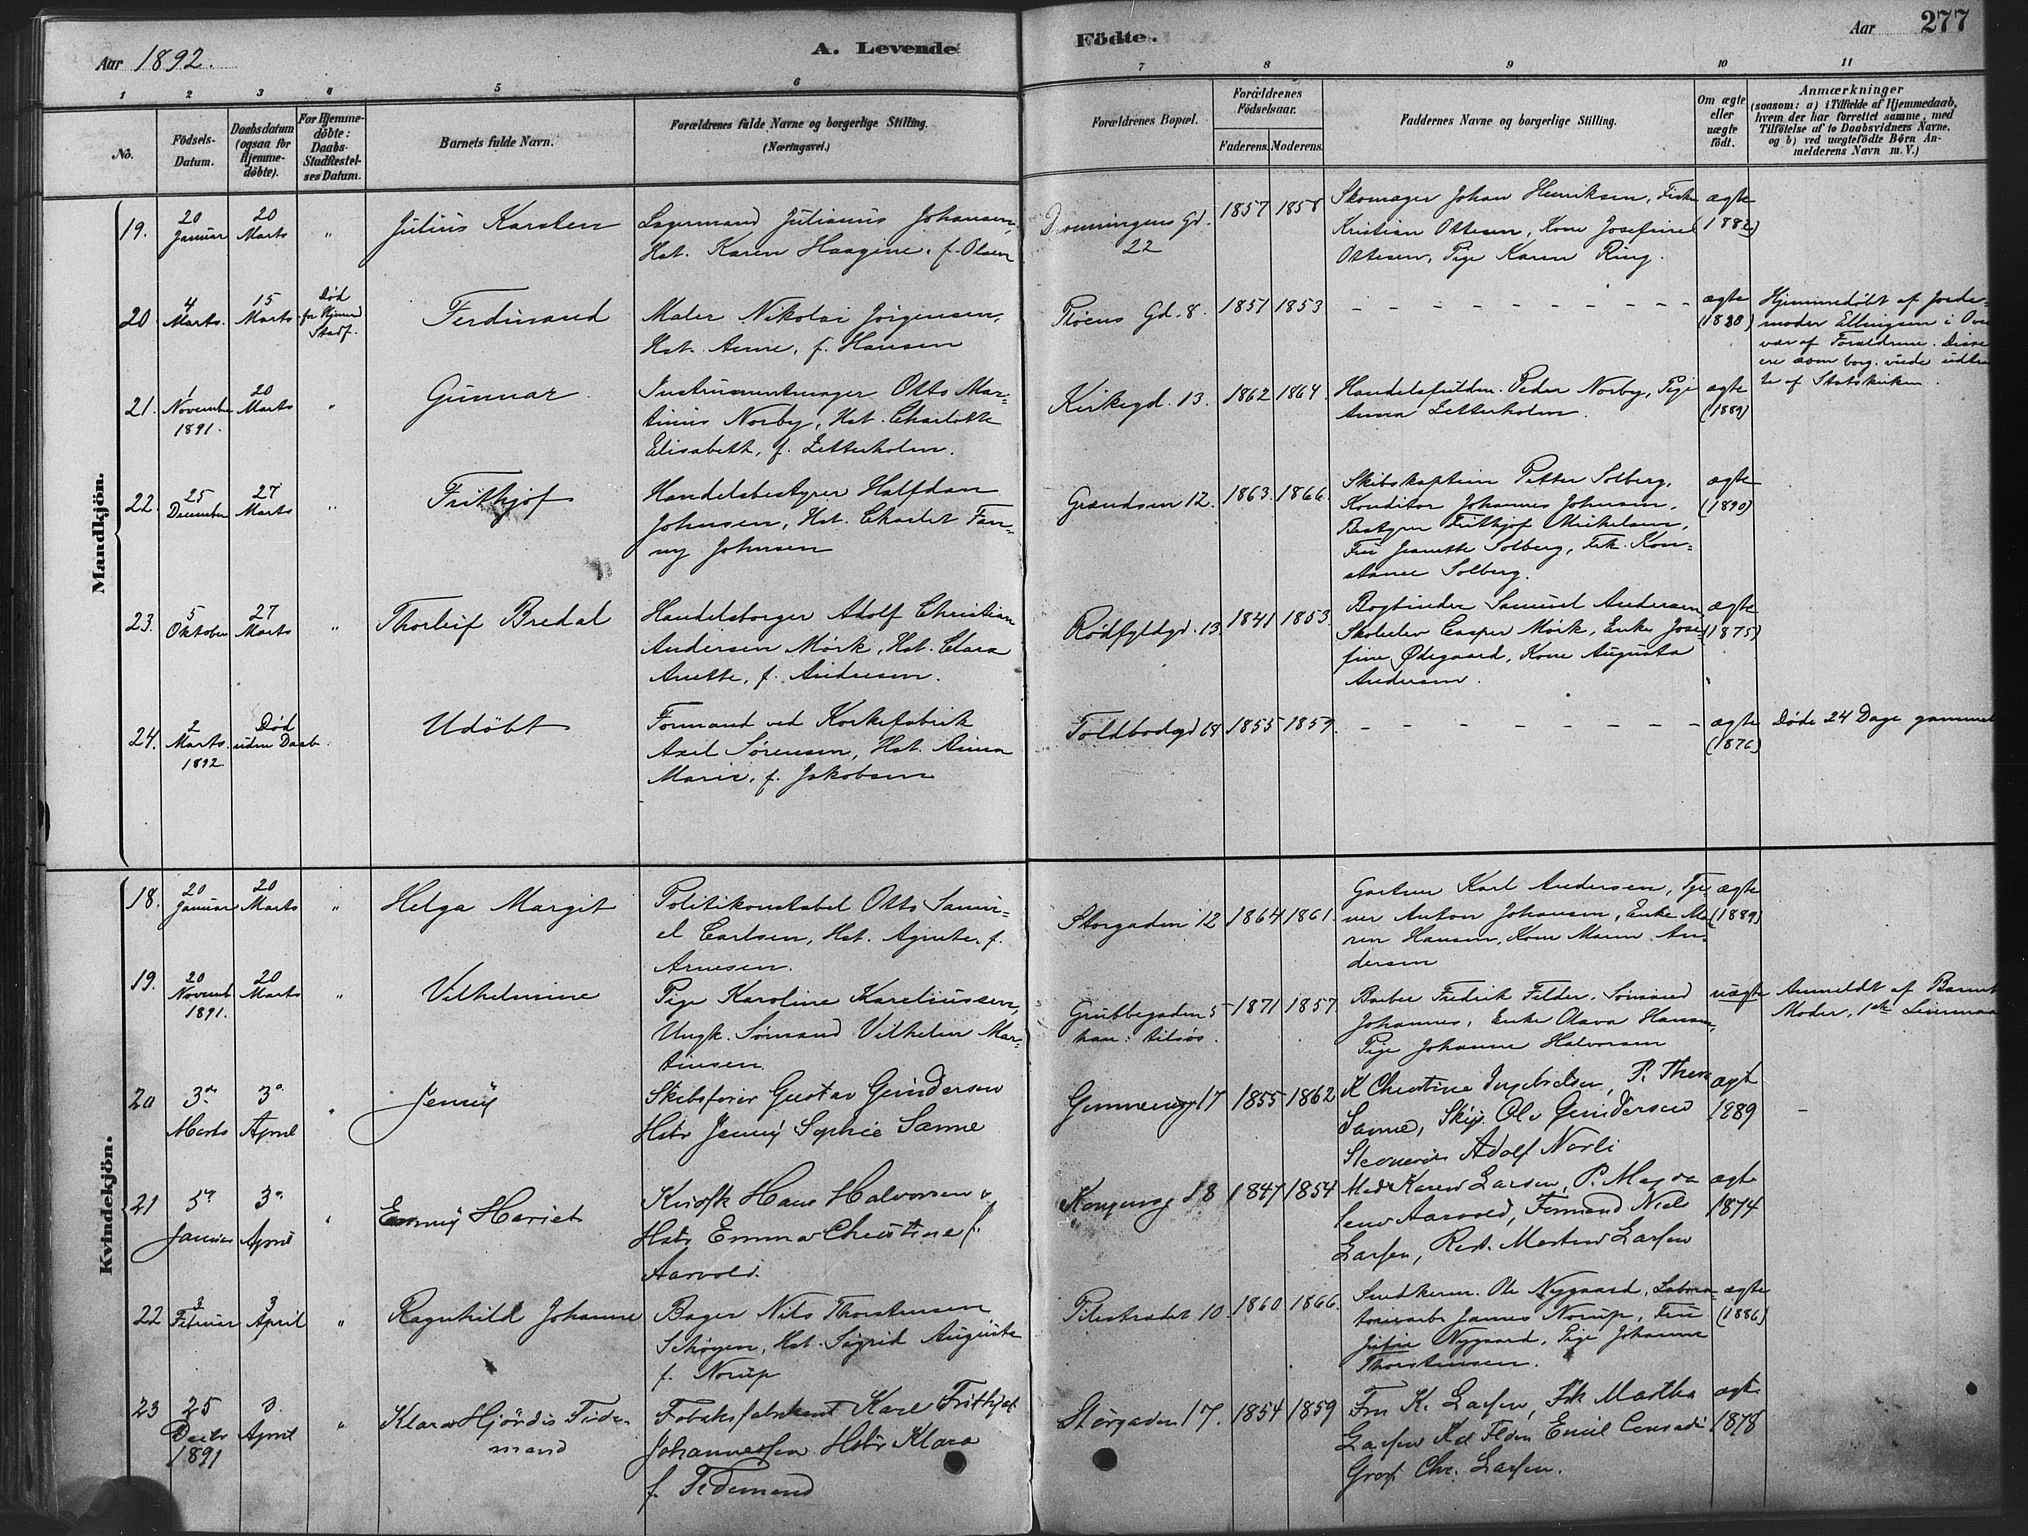 Aar 1892.
A. Levende
Födte.
Aar 277
1 2 3 4 5 6 7 8 9 10 11
No.
Födsels-Datum.
Daabsdatum (ogsaa for Hjemme-döbte).
For Hjemme-döbte: Daabs-Stadfæstel-ses Datum.
Barnets fulde Navn.
Forældrenes fulde Navne og borgerlige Stilling. (Næringsvei.)
Forældrenes Bopæl.
Forældrenes Födselsaar.
Faderens. Moderens.
Faddernes Navne og borgerlige Stilling.
Om ægte eller uægte födt.
Anmærkninger
(saasom: a) i Tilfælde af Hjemmedaab, hvem der har forrettet samme, med Tilföielse af to Daabsvidners Navne, og b) ved uægtefödte Börn An-melderens Navn m. V.)
Mandkjön.
19. 20 Januar 20 Marts " Julius Karsten
Lagermand Julianus Johansen,
Hst. Karen Haagine, f. Olsen
Dronningens Gd. 22 1857 1858
Skomager Johan Henriksen,
Kristian Ottesen, Kone Josefine
Ottesen, Pige Karen Ring.
ægte (1882)
20. 4 Marts. 15 Marts Død for Hjemmed. Stadf.
Ferdinand
Maler Nikolai Jörgensen,
Hst. Anne, f. Hansen
Pløens Gd. 8. 1851 1853 – – – – – – – –
ægte
Hjemmedöbt af Jorde-
moder Ellingsen i Over-
vær af Forældrene. Disse
ere som borg. viede udtra-
te af Statskirken.
21. 1 November 1891. 20 Marts " Gunnar
Instrumentmager Otto Mar-
tinius Norby, Hst. Charlotte
Elisabeth, f. Zetterholm.
Kirkegd. 13. 1862 1864.
Handelsfuldm. Peder Norby, Pige
Anna Zetterholm.
ægte (1889)
22. 25 December 27 Marts " Frithjof
Handelsbestyrer Halfdan
Johnsen, Hst. Charlot Fan-
ny Johnsen
Grændsen 12. 1863. 1866.
Skibskaptein Petter Solberg,
Konditor Johannes Johnsen,
Bestyrer Frithjof Mickelsen,
Fru Jeanette Solberg, Frk. Kon-
stance Solberg.
ægte (1890)
23. 5 Oktober 27 Marts " Thorleif Bredal
Handelsborger Adolf Christian
Andersen Mörk, Hst. Clara
Anette, f. Andresen.
Rödfyldgd. 13. 1841 1853.
Bogbinder Samuel Andersen,
Skoleelev Casper Mörk, Enke Jose-
fine Ødegaard, Kone Augusta
Andersen.
ægte (1875)
24. 2 Marts. 1892 Død uden Daab. Udöbt
Formand ved Korkefabrik
Axel Sørensen, Hst. Anna
Marie, f. Jakobsen
Toldbodgd 1855 1859. – – – – – – – –
ægte (1876)
Døde 24 Dage gammel
Kvindekjön.
18. 20 Januar 20 Marts " Helga Margit
Politikonstabel Otto Samu-
el Carlsen, Hst. Agnete, f.
Arnesen.
Storgaden 12 1864 1861.
Gartner Karl Andersen, Tje-
ner Anton Johansen, Enke Ma-
ren Hansen, Kone Maren An-
dersen
ægte (1889)
19. 20 Novemb. 1891. 20 Marts " Vilhelmine
Pige Karoline Kareliussen,
Ungk. Sömand Vilhelm Mar-
tinsen.
Grubbegaden 5
han: tilsøs. 1871 1857
Barber Fredrik Felder, Sömand
Johannes, Enke Olava Hansen,
Pige Johanne Halvorsen
uægte
Anmeldt af Barnets
Moder, 1ste Leiermaal
20 3de Marts 3 April " Jenny
Skibsfører Gustav Gundersen
Hstr Jenny Sophie Sanne
17 1855 1862
K Christine Ingebretsen, P. Thea
Sanne, Skip. Ole Gundersen
Adolf Norli
ægt 1889 –
21 5 Januar 3 April " Emmy Hariet
Hans Halvorsen
Hstr Emma Christine f.
Aarvold.
Kongensg 18 1847 1854
Mad Karen Larsen, P. Magda
Aarvold, Formand Niels
Larsen, Rest. Larsen
ægt 1874
22 3 Februar 3 April " Ragnhild Johanne
Bager Nils Thorstensen
Schøyen, Hst. Sigrid Auguste
f. Norup
Pilestrædet 10 1860 1866.
Snedkerm. Ole Nygaard, Labora-
torarb. James Norup, Fru
Nygaard, Pige Johanne
Thorstensen.
ægte (1886)
23 25 Decbr 1891 3 April " Klara Hjördis Tide-
mand
Tobaksfabrikant Karl Frithjof
Johannessen Hstr Klara
f. Tidemand
Storgaden 17. 1854 1859
Fru K. Larsen, Frk Martha
Larsen Emil Conradi
Gros. Chr. Larsen.
ægt. 1878